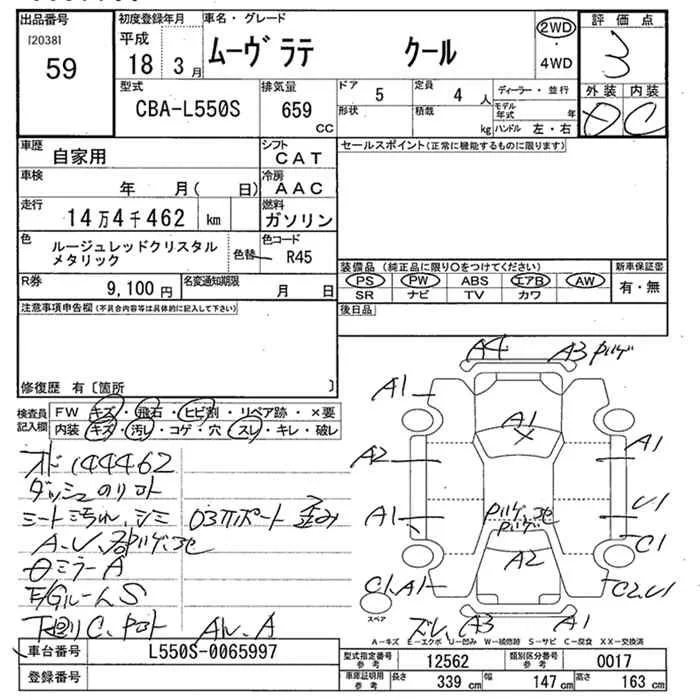 出品番号
[2038]
59
初度登録年月
平成
18 3月
車名・グレード
ムーヴラテ クール
2WD
・
4WD
評価点
3
外装 内装
D C
型式
CBA-L550S
排気量
659
CC
ドア
5
定員
4 人
形状
積載
kg
ディーラー・並行
モデル年式 年
ハンドル 左・右
車歴
自家用
シフト
CAT
車検
年 月( 日)
冷房
AAC
走行
14万4千462 km
燃料
ガソリン
色
ルージュレッドクリスタル
メタリック
色替
色コード
R45
R券
9,100円
名変通知期限
月 日
セールスポイント(正常に機能するものに限ります)
装備品(純正品に限り○をつけてください)
PS PW ABS エアB AW
SR ナビ TV カワ
新車保証書
有・無
後日品
注意事項申告欄(不具合内容等は具体的に記入して下さい)
修復歴 有〔箇所 〕
検査員
記入欄
FW キズ・飛石・ヒビ割・リペア跡・×要
内装 キズ・汚レ・コゲ・穴・スレ・キレ・破レ
オド144462
ダッシュのり
シート汚れ、シミ
歪み
A.U.
ミラーA
ルームS
下廻りC、
A
A4
A3
A1
A1
A2
A1
A1
U1
C1
A2
C1.A1
C2.U1
A3
A1
スペア
A-キズ E-エクボ U-凹み W-補修跡 S-サビ C-腐食 XX-交換済
車台番号
L550S-0065997
登録番号
型式指定番号
参考
12562
類別区分番号
参考
0017
車庫証明用
参考
長さ
339 cm
幅
147 cm
高さ
163 cm